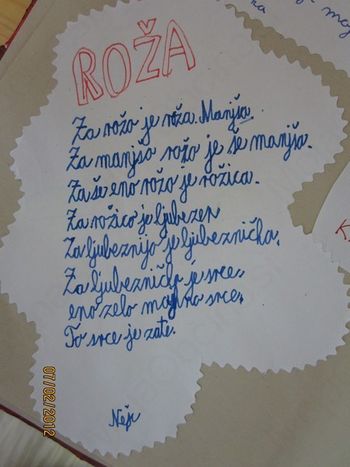 ROŽA
Za rožo je roža. Manjša.
Za manjšo rožo je še manjša.
Za še eno rožo je rožica.
Za rožico je ljubezen
Za ljubeznijo je ljubeznička.
Za ljubezničko je srce,
eno zelo majhno srce.
To srce je zate.
Nejc
07/02/2012